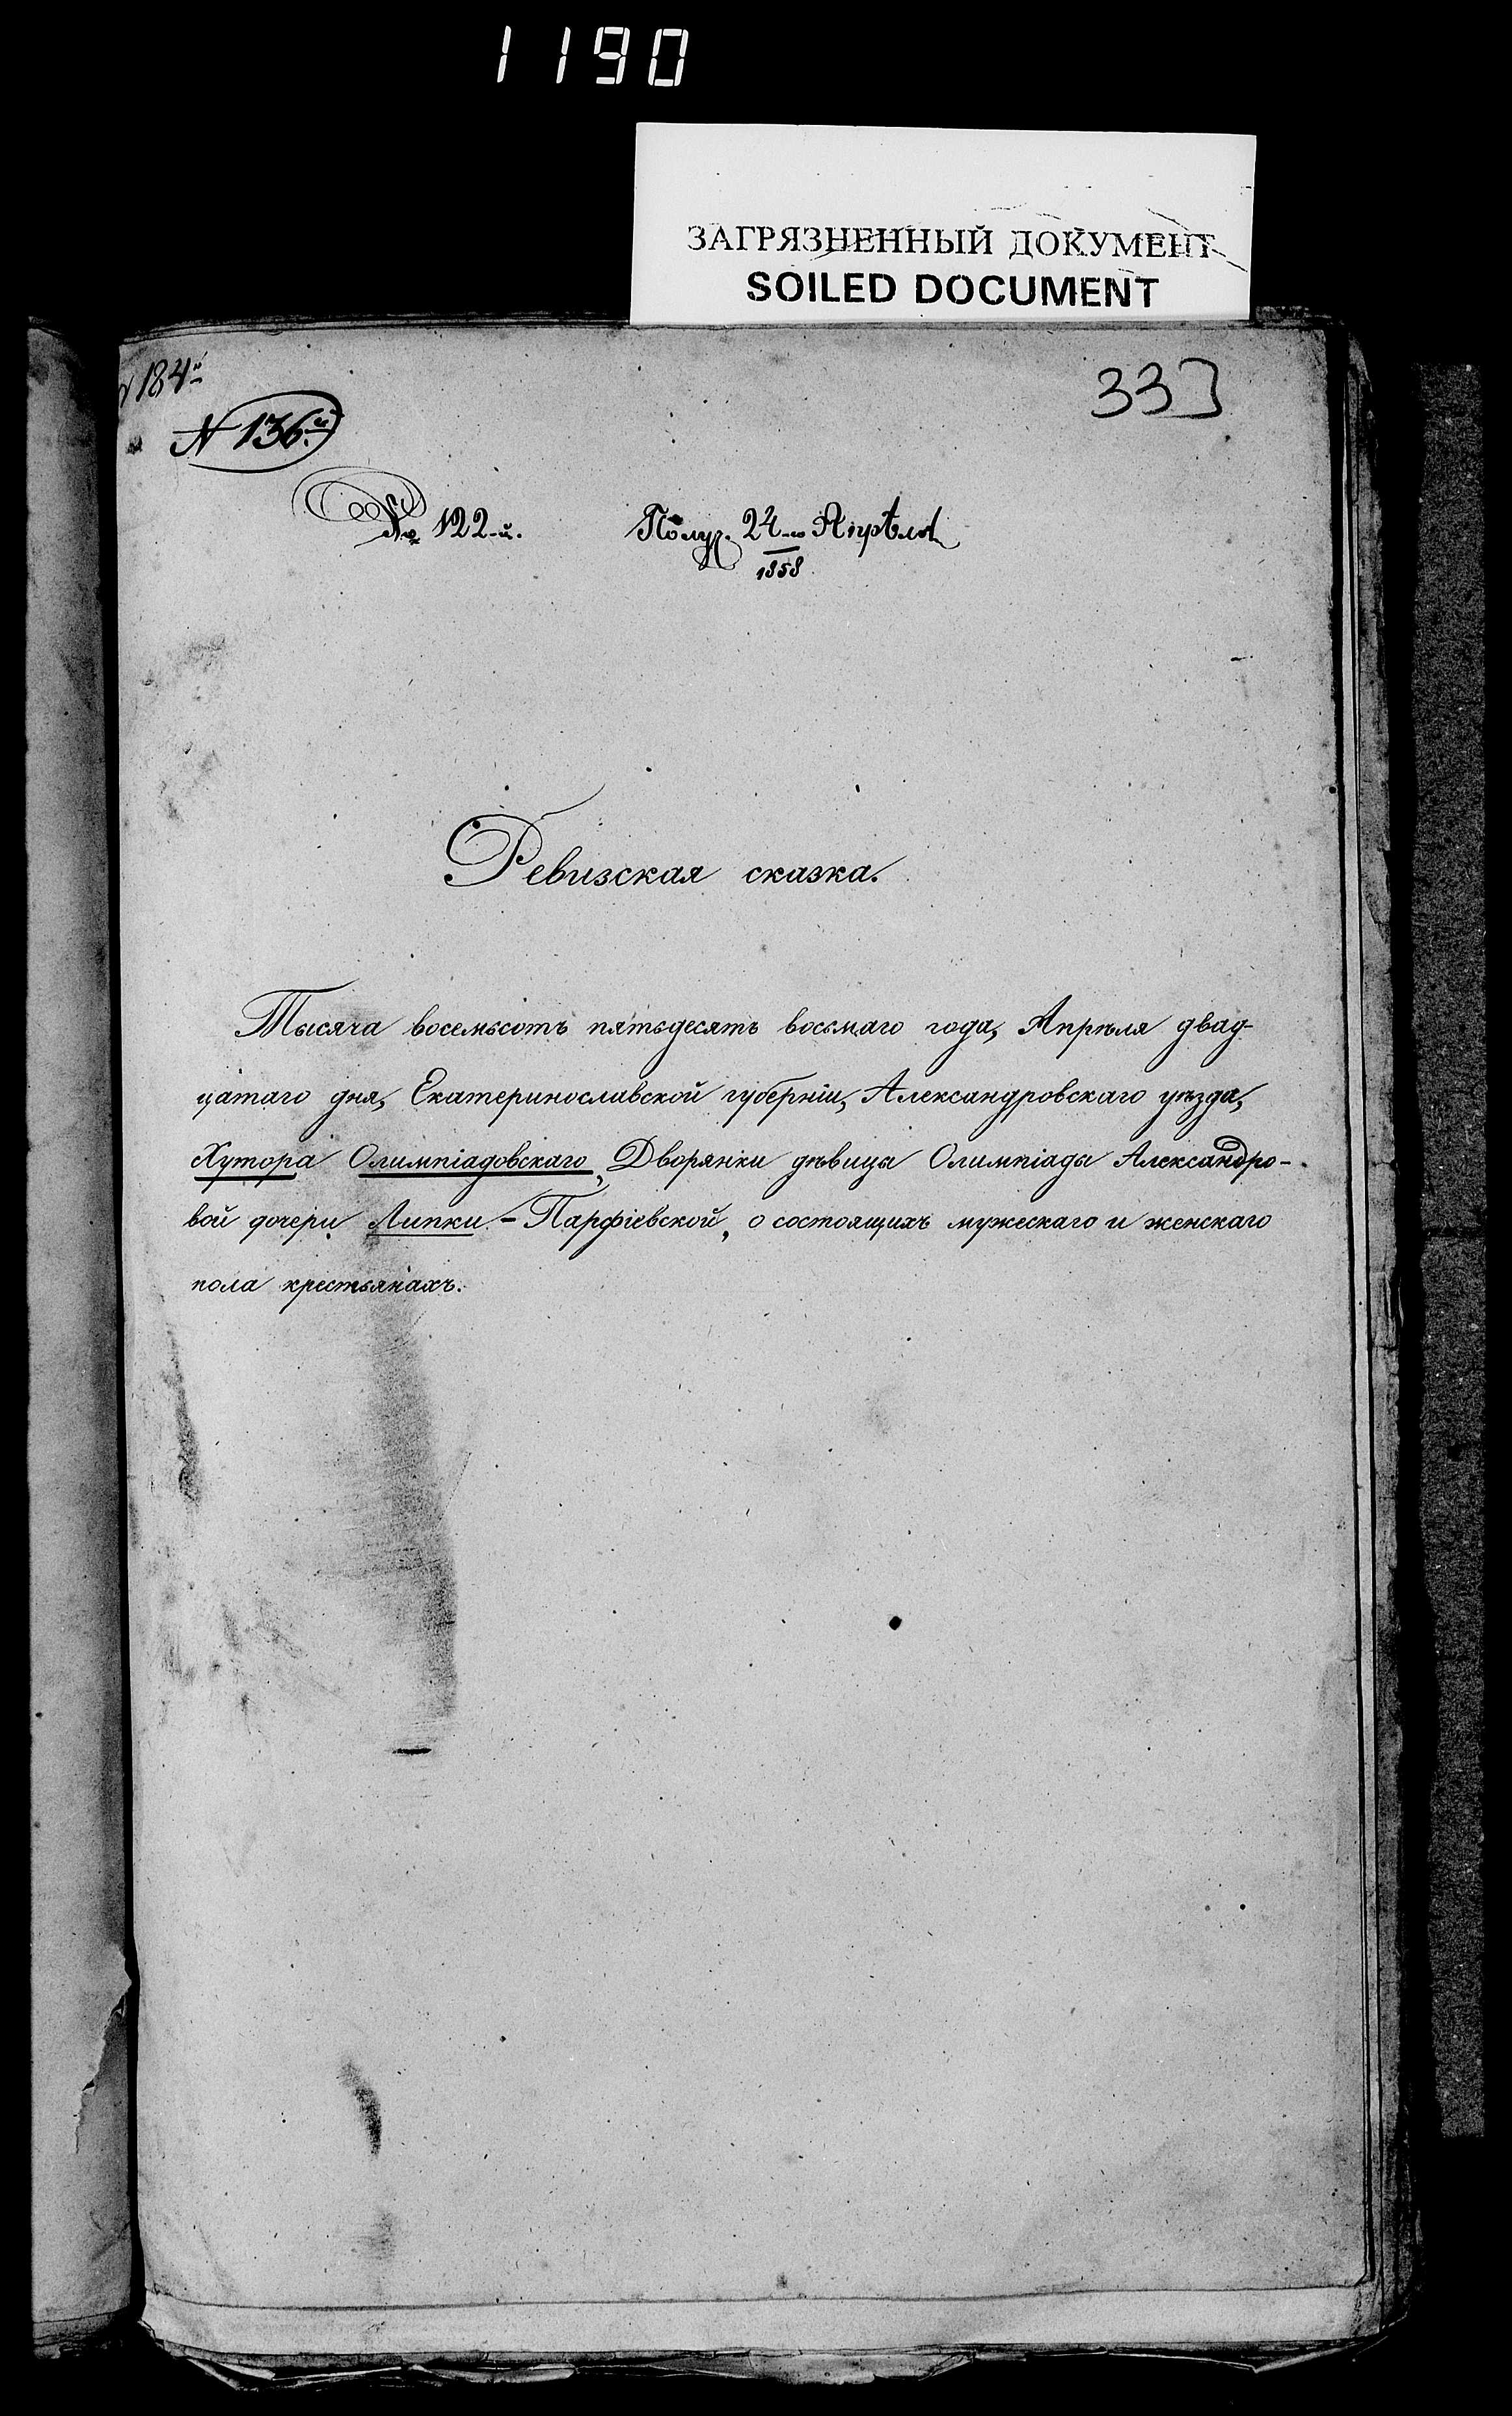 1190
ЗАГРЯЗНЕННЫЙ ДОКУМЕНТ
SOILED DOCUMENT
184й
333
N 136й
№ 122-й. Получ. 24-го Апрѣля
1858
Ревизская сказка.
Тысяча восемьсотъ пятьдесятъ восьмаго года, Апрѣля двад-
цатаго дня, Екатеринославской губерніи, Александровскаго уѣзда,
Хутора Олимпіадовскаго, Дворянки дѣвицы Олимпіады Александро-
вой дочери Липки-Парфіевской, о состоящихъ мужескаго и женскаго
пола крестьянахъ.